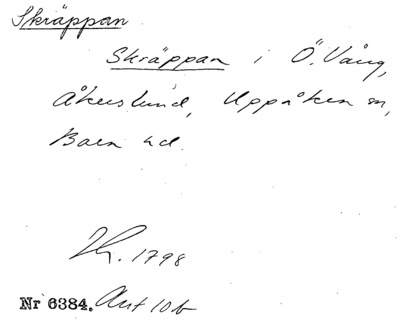 Skräppan
Skräppan i Ö. Vång,
Åkerslund, Uppåkra sn,
Bara hd.
1798
Nr 6384. Akt 10b